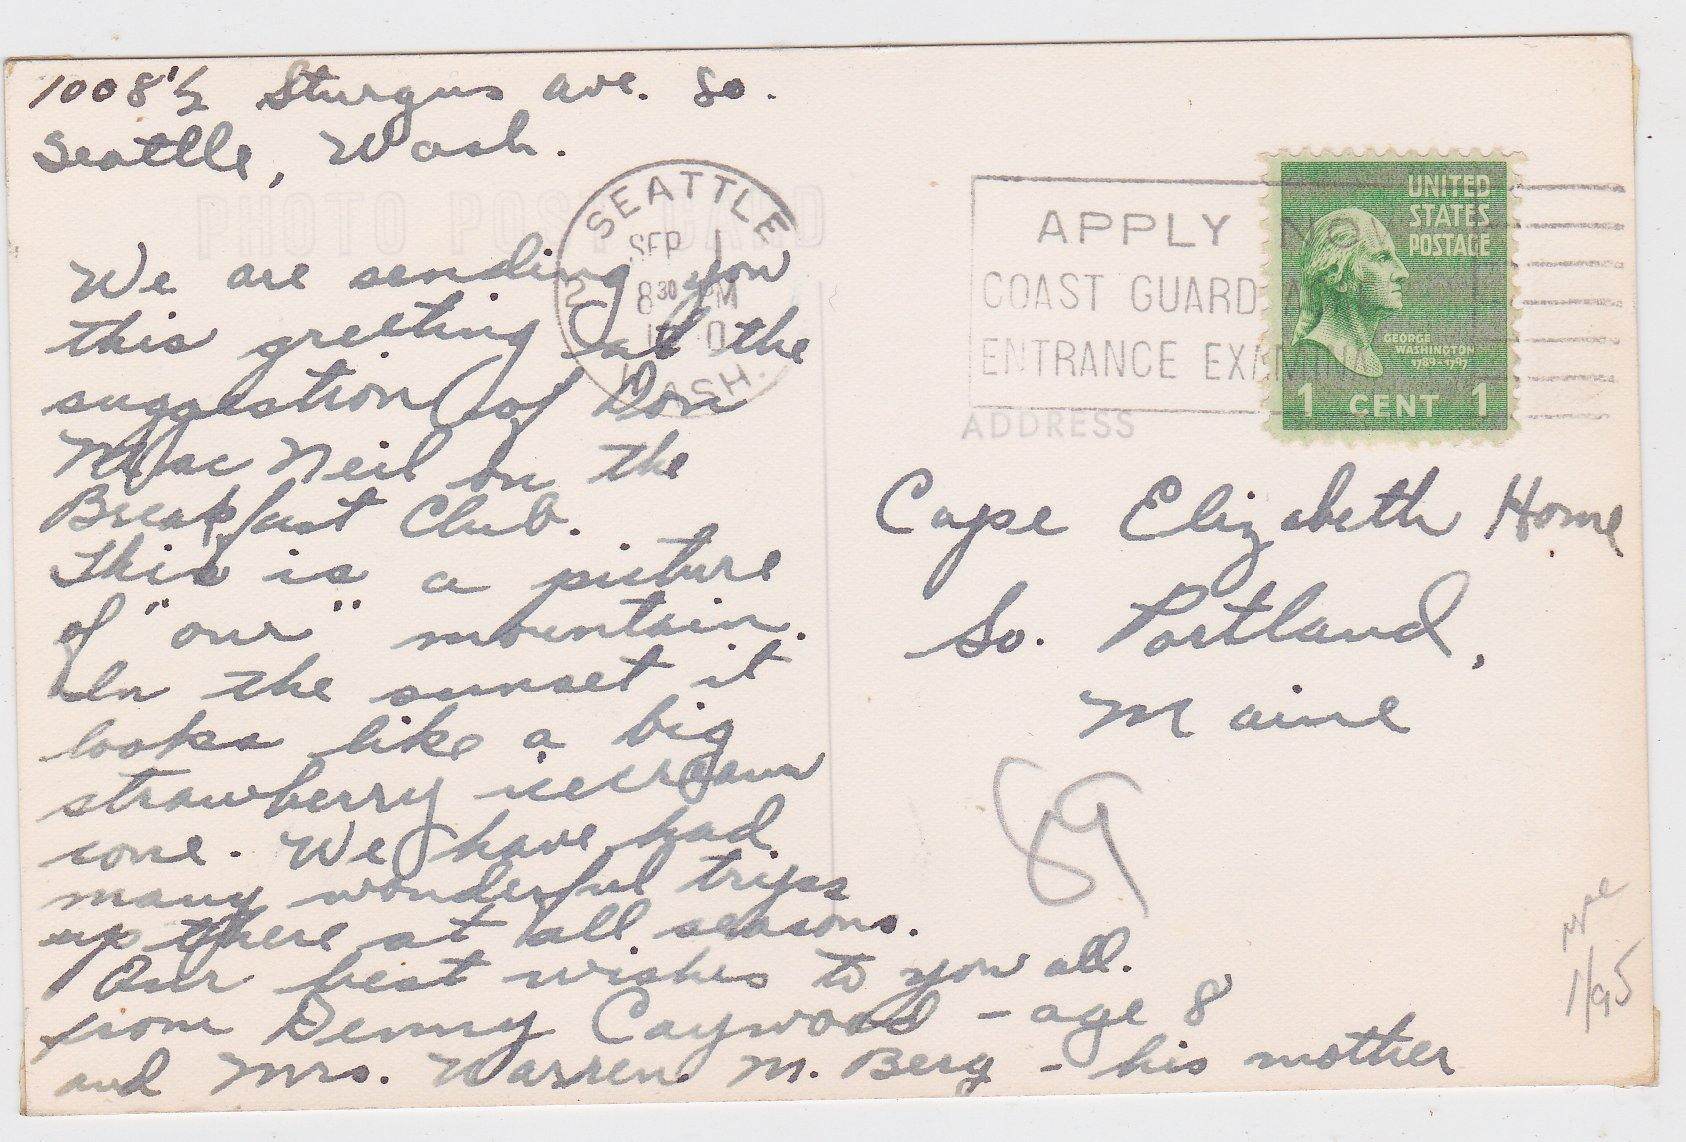 1008 1/2 Sturgus Ave. So.
Seattle, Wash.
PHOTO POST CARD
We are sending you
this greeting at the
suggestion of Don
MacNeil on the
Breakfast Club.
This is a picture
of "our" mountain.
In the sunset it
looks like a big
strawberry icecream
cone. We have had
many wonderful trips
up there at all seasons.
Our best wishes to you all.
from Denny Caywood - age 8
and Mrs. Warren M. Berg - his mother
SEATTLE
SEP
8 30 PM
WASH.
APPLY NOW
COAST GUARD
ENTRANCE EXAMIN
UNITED
STATES
POSTAGE
GEORGE
WASHINGTON
1789-1797
1 CENT 1
ADDRESS
Cape Elizabeth Home
So. Portland,
Maine
89
1/95